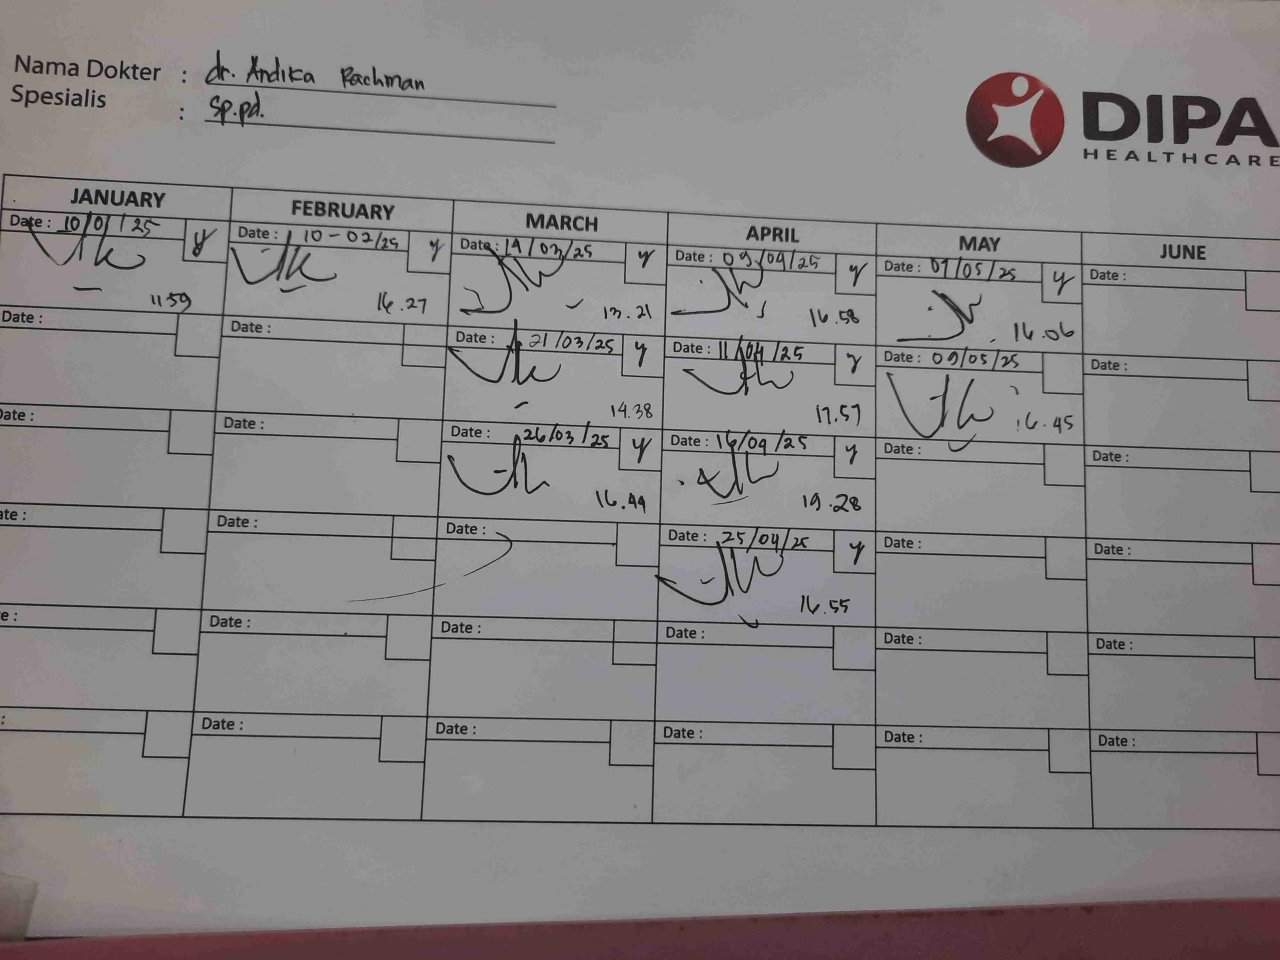 Nama Dokter : dr. Andika Rachman
Spesialis : Sp.pd.
DIPA
HEALTHCARE
JANUARY FEBRUARY MARCH APRIL MAY JUNE
Date : 10/01/25 y Date : 10-02/25 y Date : 19/03/25 y Date : 09/04/25 y Date : 07/05/25 y Date :
11 59 16.27 13.21 16.58 16.06
Date : Date : Date : 21/03/25 y Date : 11/04/25 y Date : 09/05/25 Date :
14.38 17.57 16.45
Date : Date : Date : 26/03/25 y Date : 16/04/25 y Date : Date :
16.44 19.28
ate : Date : Date : Date : 25/04/25 y Date : Date :
16.55
e : Date : Date : Date : Date : Date :
: Date : Date : Date : Date : Date :